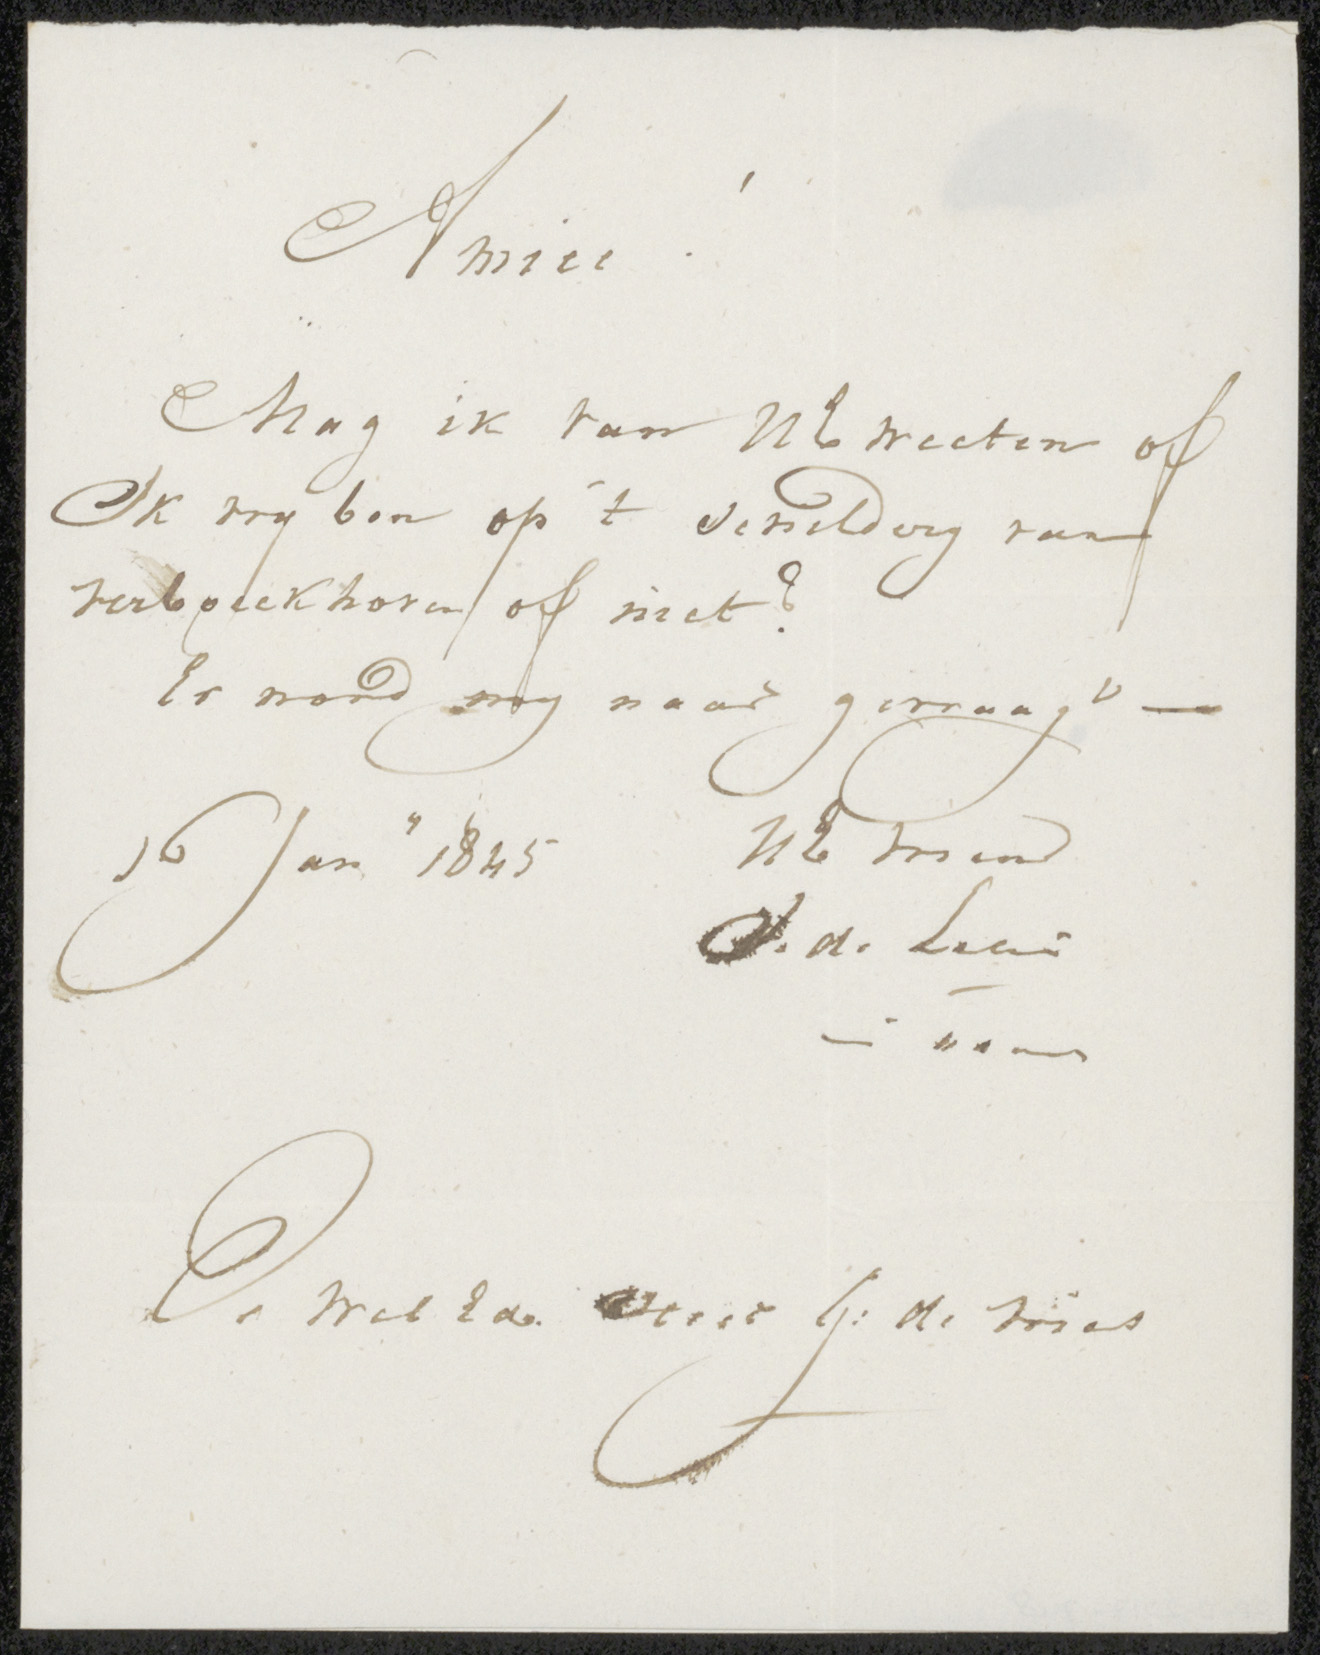 Amice !
Mag ik van UE weeten of
Ik vry ben op 't schildery van
verboeckhoven of niet?
Er word my naar gevraagd —
16 Jan" 1845 UE vriend
de
De Wel Ed. Heer G: de Vries